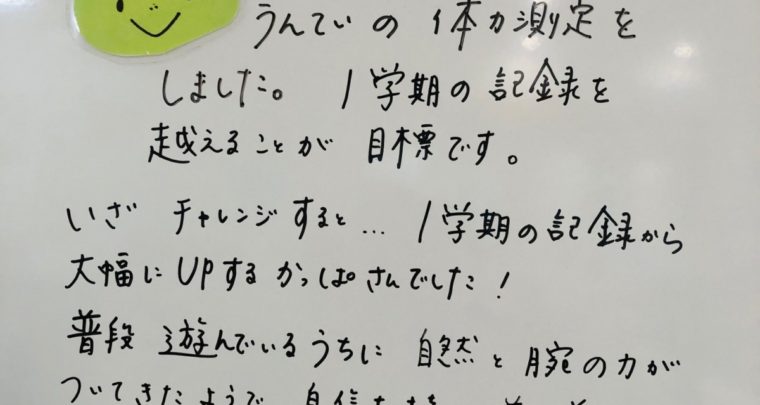 うんていの 体力測定を
しました。 1学期の 記録を
越えることが 目標です。
いざ チャレンジすると… 1学期の記録から
大幅に UPする かっぱさんでした！
普段 遊んでいるうちに 自然と 腕の力が
ついてきたようで 自信